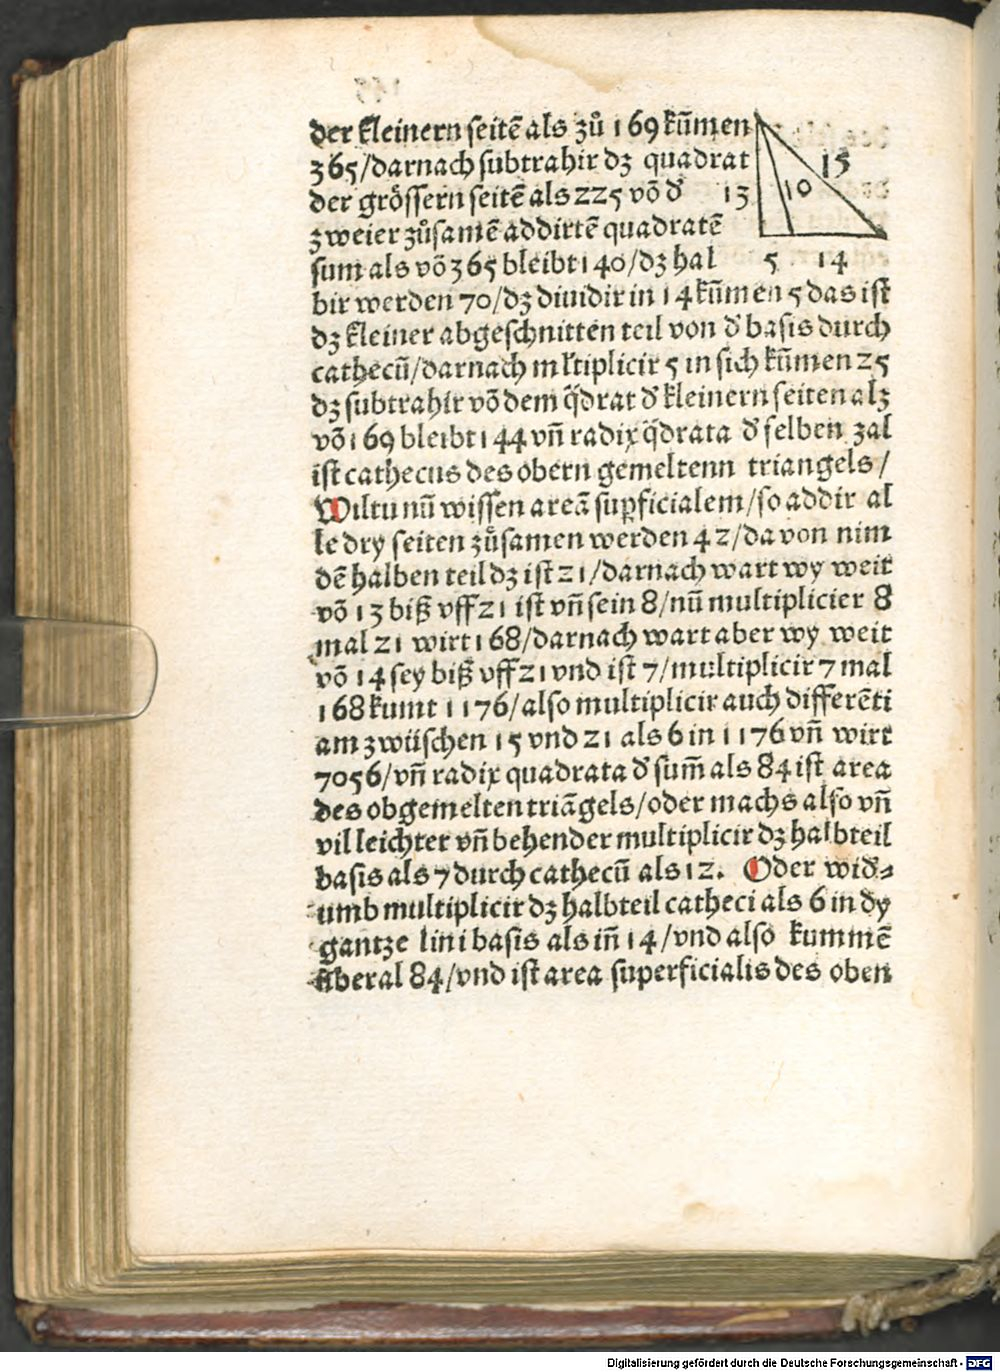 der kleinern seitē als zů 169 kūmen
365/darnach subtrahir dz quadrat
der grössern seitē als 225 vō d'
zweier zůsamē addirtē quadratē
sum als vō 365 bleibt 140/dz hal
15
10
13
5 14
bir werden 70/dz diuidir in 14 kūmen 5 das ist
dz kleiner abgeschnitten teil von d' basis durch
cathecū/darnach mltiplicir 5 in sich kūmen 25
dz subtrahir vō dem q̄drat d' kleinern seiten alz
vō 169 bleibt 144 vn̄ radix q̄drata d' selben zal
ist cathecus des obern gemeltenn triangels/
Wiltu nū wissen areā supficialem/so addir al
le dry seiten zůsamen werden 42/da von nim
dē halben teil dz ist 21/darnach wart wy weit
vō 13 biß vff 21 ist vn̄ sein 8/nū multiplicier 8
mal 21 wirt 168/darnach wart aber wy weit
vō 14 sey biß vff 21 vnd ist 7/multiplicir 7 mal
168 kumt 1176/also multiplicir auch differēti
am zwüschen 15 vnd 21 als 6 in 1176 vn̄ wirt
7056/vn̄ radix quadrata d' sum̄ als 84 ist area
des obgemelten triāgels/oder machs also vn̄
vil leichter vn̄ behender multiplicir dz halbteil
basis als 7 durch cathecū als 12. Oder wid'=
umb multiplicir dz halbteil catheci als 6 in dy
gantze lini basis als in̄ 14/vnd also kummē
aberal 84/vnd ist area superficialis des oben
Digitalisierung gefördert durch die Deutsche Forschungsgemeinschaft - DFG